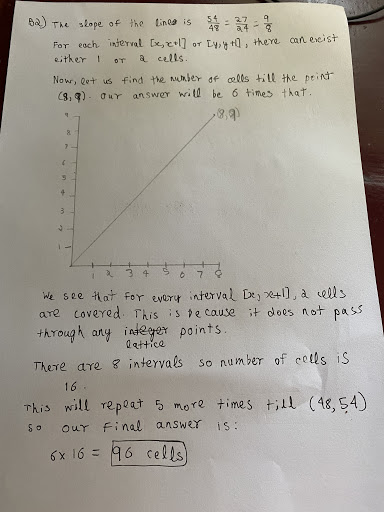 Q2) The slope of the lines is 54/48 = 27/24 = 9/8
For each interval [x,x+1] or [y,y+1], there can exist
either 1 or 2 cells.
Now, let us find the number of cells till the point
(8,9). Our answer will be 6 times that.
(8,9)
9
8
7
6
5
4
3
2
1
1 2 3 4 5 6 7 8
We see that for every interval [x, x+1], 2 cells
are covered. This is because it does not pass
through any integer points.
lattice
There are 8 intervals so number of cells is
16.
This will repeat 5 more times till (48,54)
so our final answer is:
6x 16 = 96 cells